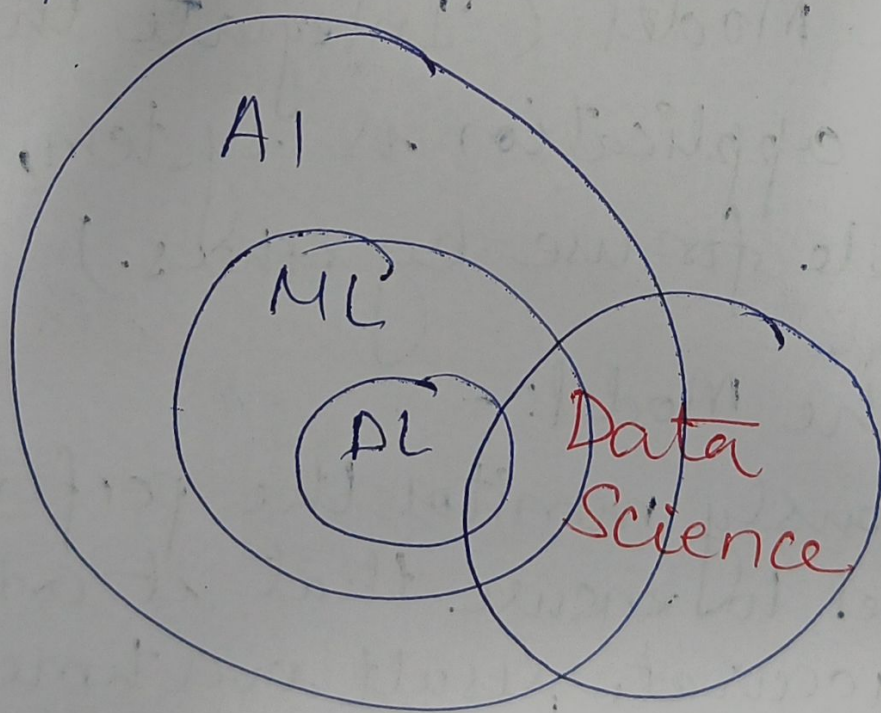 AI
ML
DL
Data
Science